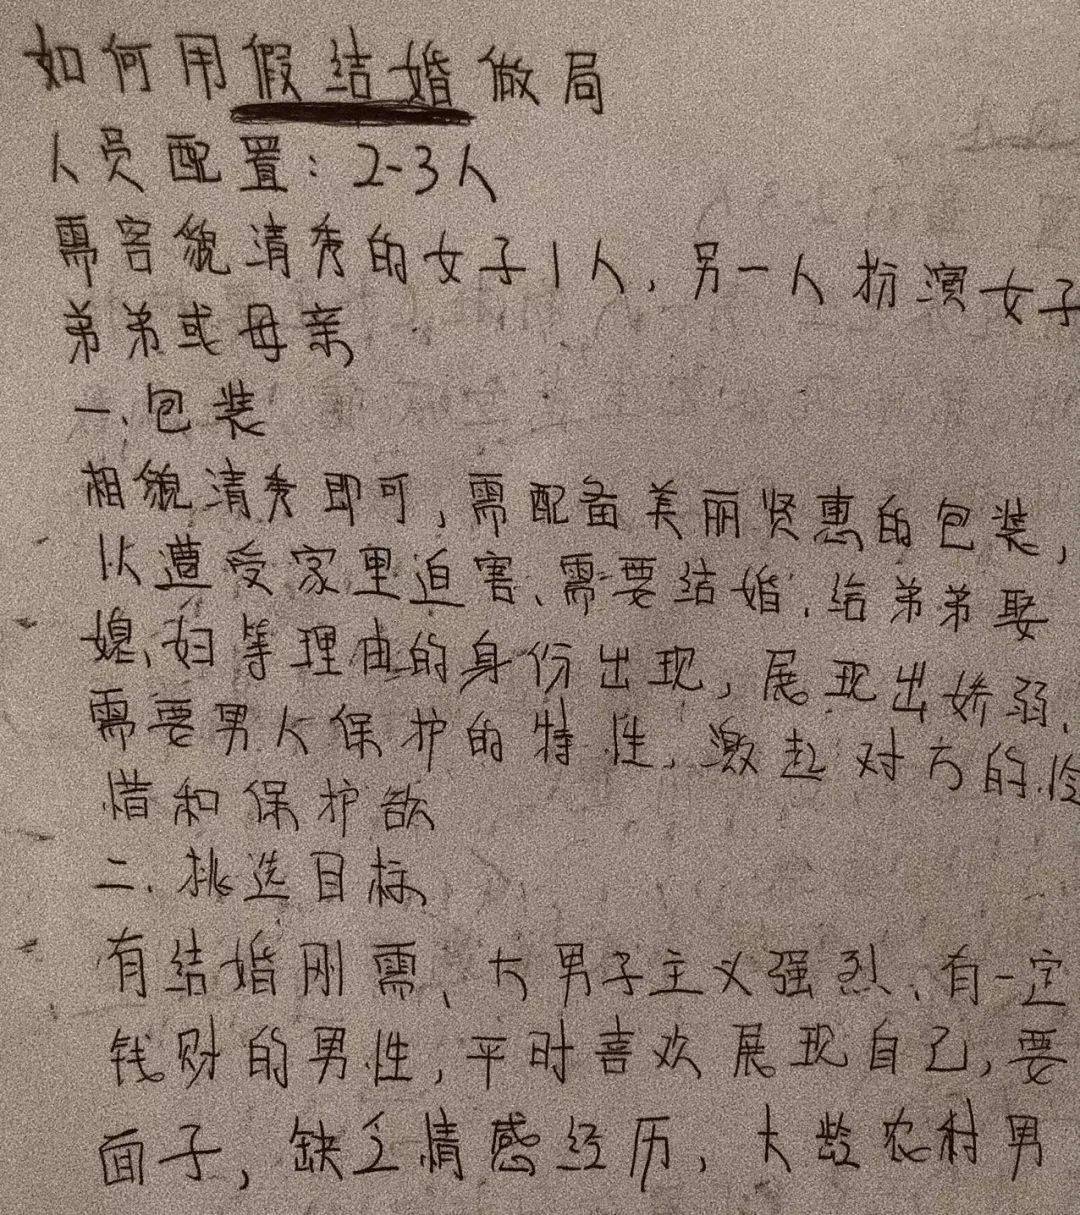 如何用假结婚做局
人员配置：2-3人
需容貌清秀的女子1人，另一人扮演女子
弟弟或母亲
一、包装
相貌清秀即可，需配备美丽贤惠的包装，
以遭受家里迫害、需要结婚、给弟弟娶
媳妇等理由的身份出现，展现出娇弱、
需要男人保护的特性，激起对方的怜
惜和保护欲
二、挑选目标
有结婚刚需、大男子主义强烈、有一定
钱财的男性，平时喜欢展现自己，要
面子，缺乏情感经历，大龄农村男